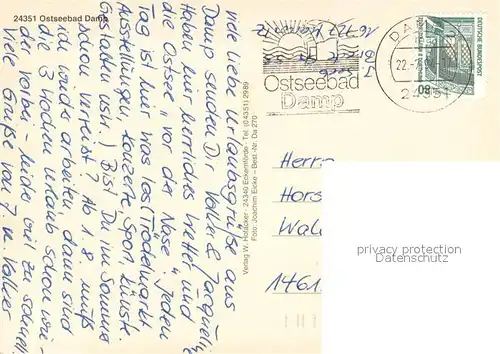 24351 Ostseebad Damp
viele liebe Urlaubsgrüße aus
Damp senden Dir Volker & Jacqueline
Haben hier herrliches Wetter und
die Ostsee "vor der Nase". Jeden
Tag ist hier was los (Trödelmarkt
Ausstellungen, Konzerte, Sport, Künste.
Gestalten usw.) Bist Du im Sommer
schon verreist? Ab 1.8. muß
ich wieder arbeiten, dann sind
die 3 Wochen Urlaub schon wie-
der vorbei, leider viel zu schnell
Viele Grüße von J. u. Volker
Verlag W. Hofäcker · 24340 Eckernförde · Tel. (04351) 2989
Foto: Joachim Eicke – Best.-Nr. Da 270
Ostseebad
Damp
DAMP
22.-7.
24351
DEUTSCHE BUNDESPOST
80
Herrn
Hors
Wal
1461
privacy protection
Datenschutz